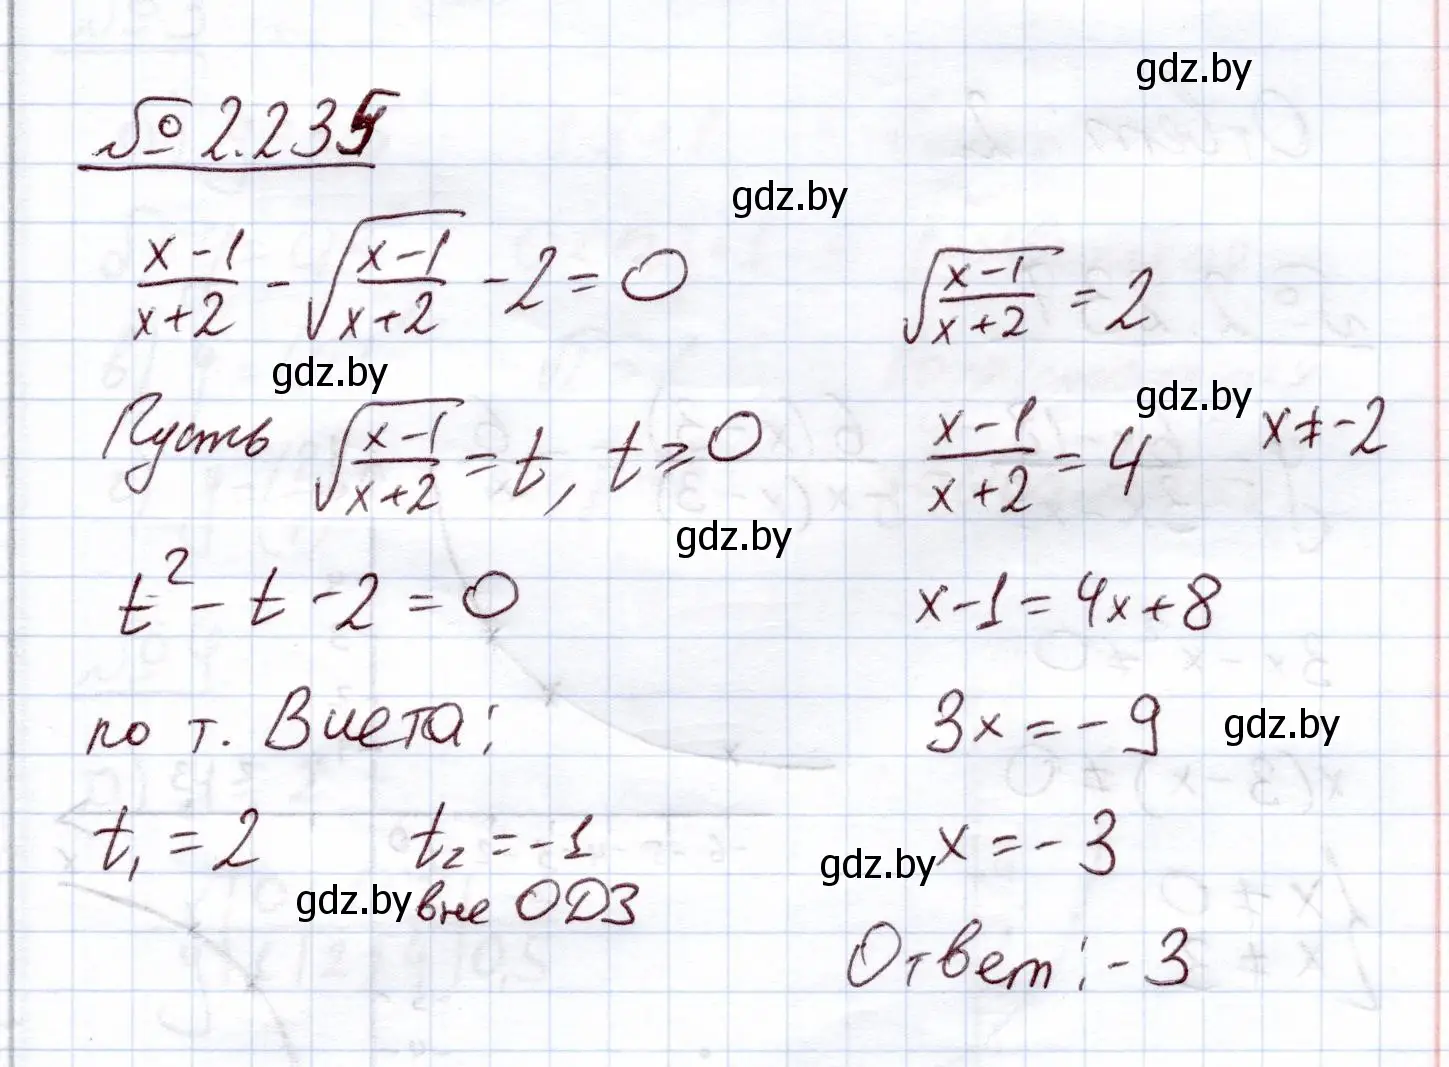 gdz.by
№ 2.235
gdz.by
(x-1)/(x+2) - √((x-1)/(x+2)) - 2 = 0
gdz.by
Пусть √((x-1)/(x+2)) = t, t ≥ 0
gdz.by
t² - t - 2 = 0
по т. Виета:
t₁ = 2 t₂ = -1
gdz.by вне ОДЗ
√((x-1)/(x+2)) = 2
gdz.by
(x-1)/(x+2) = 4 x ≠ -2
x-1 = 4x+8
3x = -9
gdz.by
gdz.by x = -3
Ответ: -3